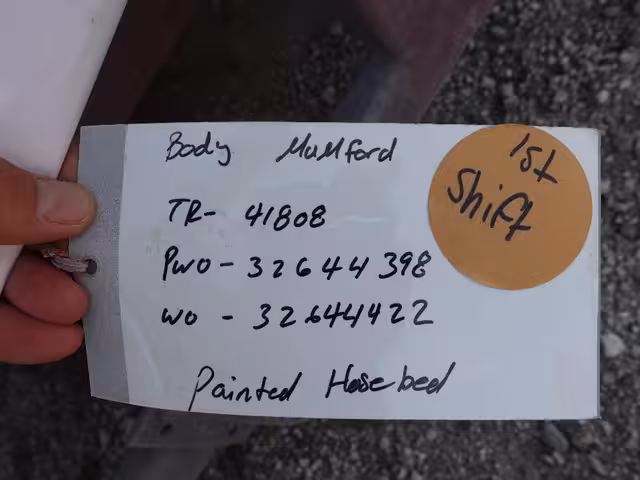 Body MuMford
TR- 41808
PWO - 32644398
WO - 32644422
Painted Hosebed
1st
Shift